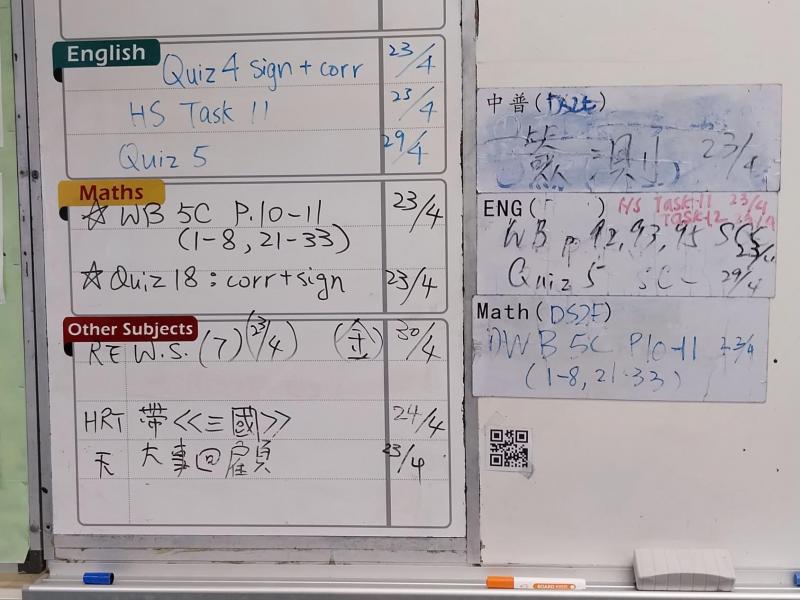 English
Quiz 4 sign + corr 23/4
HS Task 11 23/4
Quiz 5 29/4
Maths
☆ WB 5C P.10-11 23/4
(1-8, 21-33)
☆ Quiz 18 : corr+sign 23/4
Other Subjects
RE W.S. (7) (23/4) (金) 30/4
HRT 帶<<三國>> 24/4
大事回 23/4
中普( )
23/4
ENG( ) HS Task 11 23/4
Task 12
WB p 92, 93, 95
Quiz 5 SC- 29/4
Math(DS2F)
WB 5C P10-11 23/4
(1-8, 21-33)
BOARD